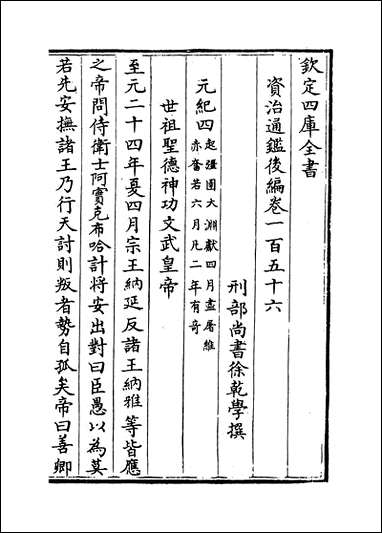 欽定四庫全書
資治通鑑後編卷一百五十六
刑部尚書徐乾學撰
元紀四起彊圉大淵獻四月盡屠維
赤奮若六月凡二年有奇
世祖聖德神功文武皇帝
至元二十四年夏四月宗王納延反諸王納雅等皆應
之帝問侍衛士阿實克布哈計將安出對曰臣愚以為莫
若先安撫諸王乃行天討則叛者勢自孤矣帝曰善卿